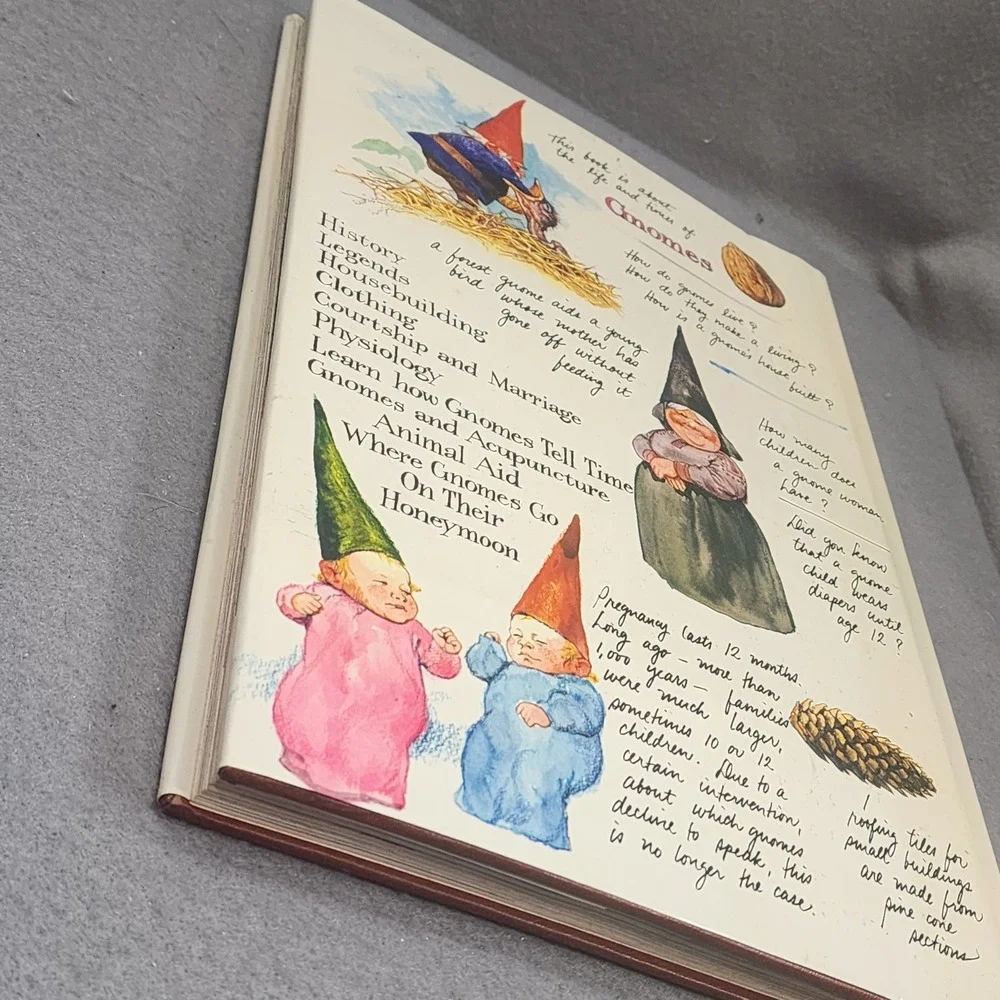 this book is about
the life and times of
Gnomes
How do gnomes live?
How do they make a living?
How is a gnome's house built?
a forest gnome aids a young
bird whose mother has
gone off without
feeding it
History
Legends
Housebuilding
Clothing
Courtship and Marriage
Physiology
Learn how Gnomes Tell Time
Gnomes and Acupuncture
Animal Aid
Where Gnomes Go
On Their
Honeymoon
How many
children does
a gnome woman
have?
Did you know
that a gnome
child wears
diapers until
age 12?
Pregnancy lasts 12 months.
Long ago — more than
1,000 years — families
were much larger,
sometimes 10 or 12
children. Due to a
certain intervention,
about which gnomes
decline to speak, this
is no longer the case.
roofing tiles for
small buildings
are made from
pine cone
sections